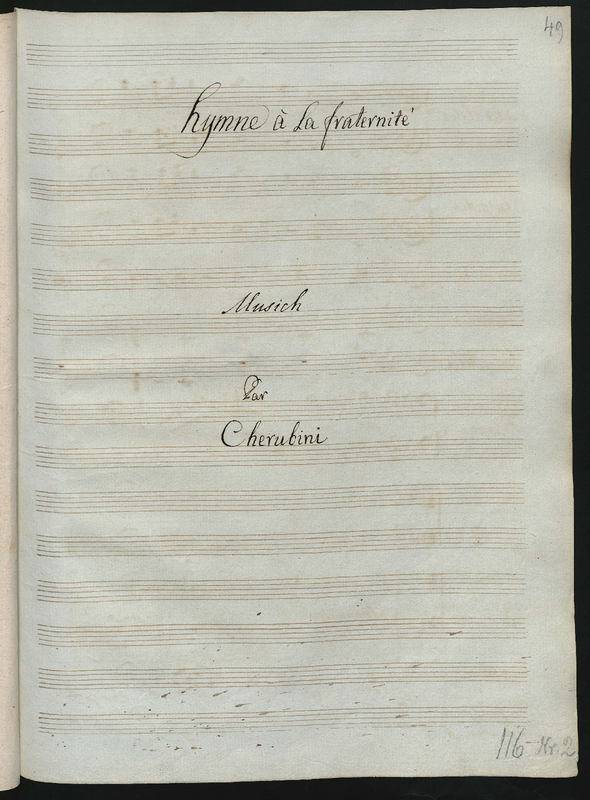 49
hymne à La fraternité
Musich
Par
Cherubini
116 Nr. 2